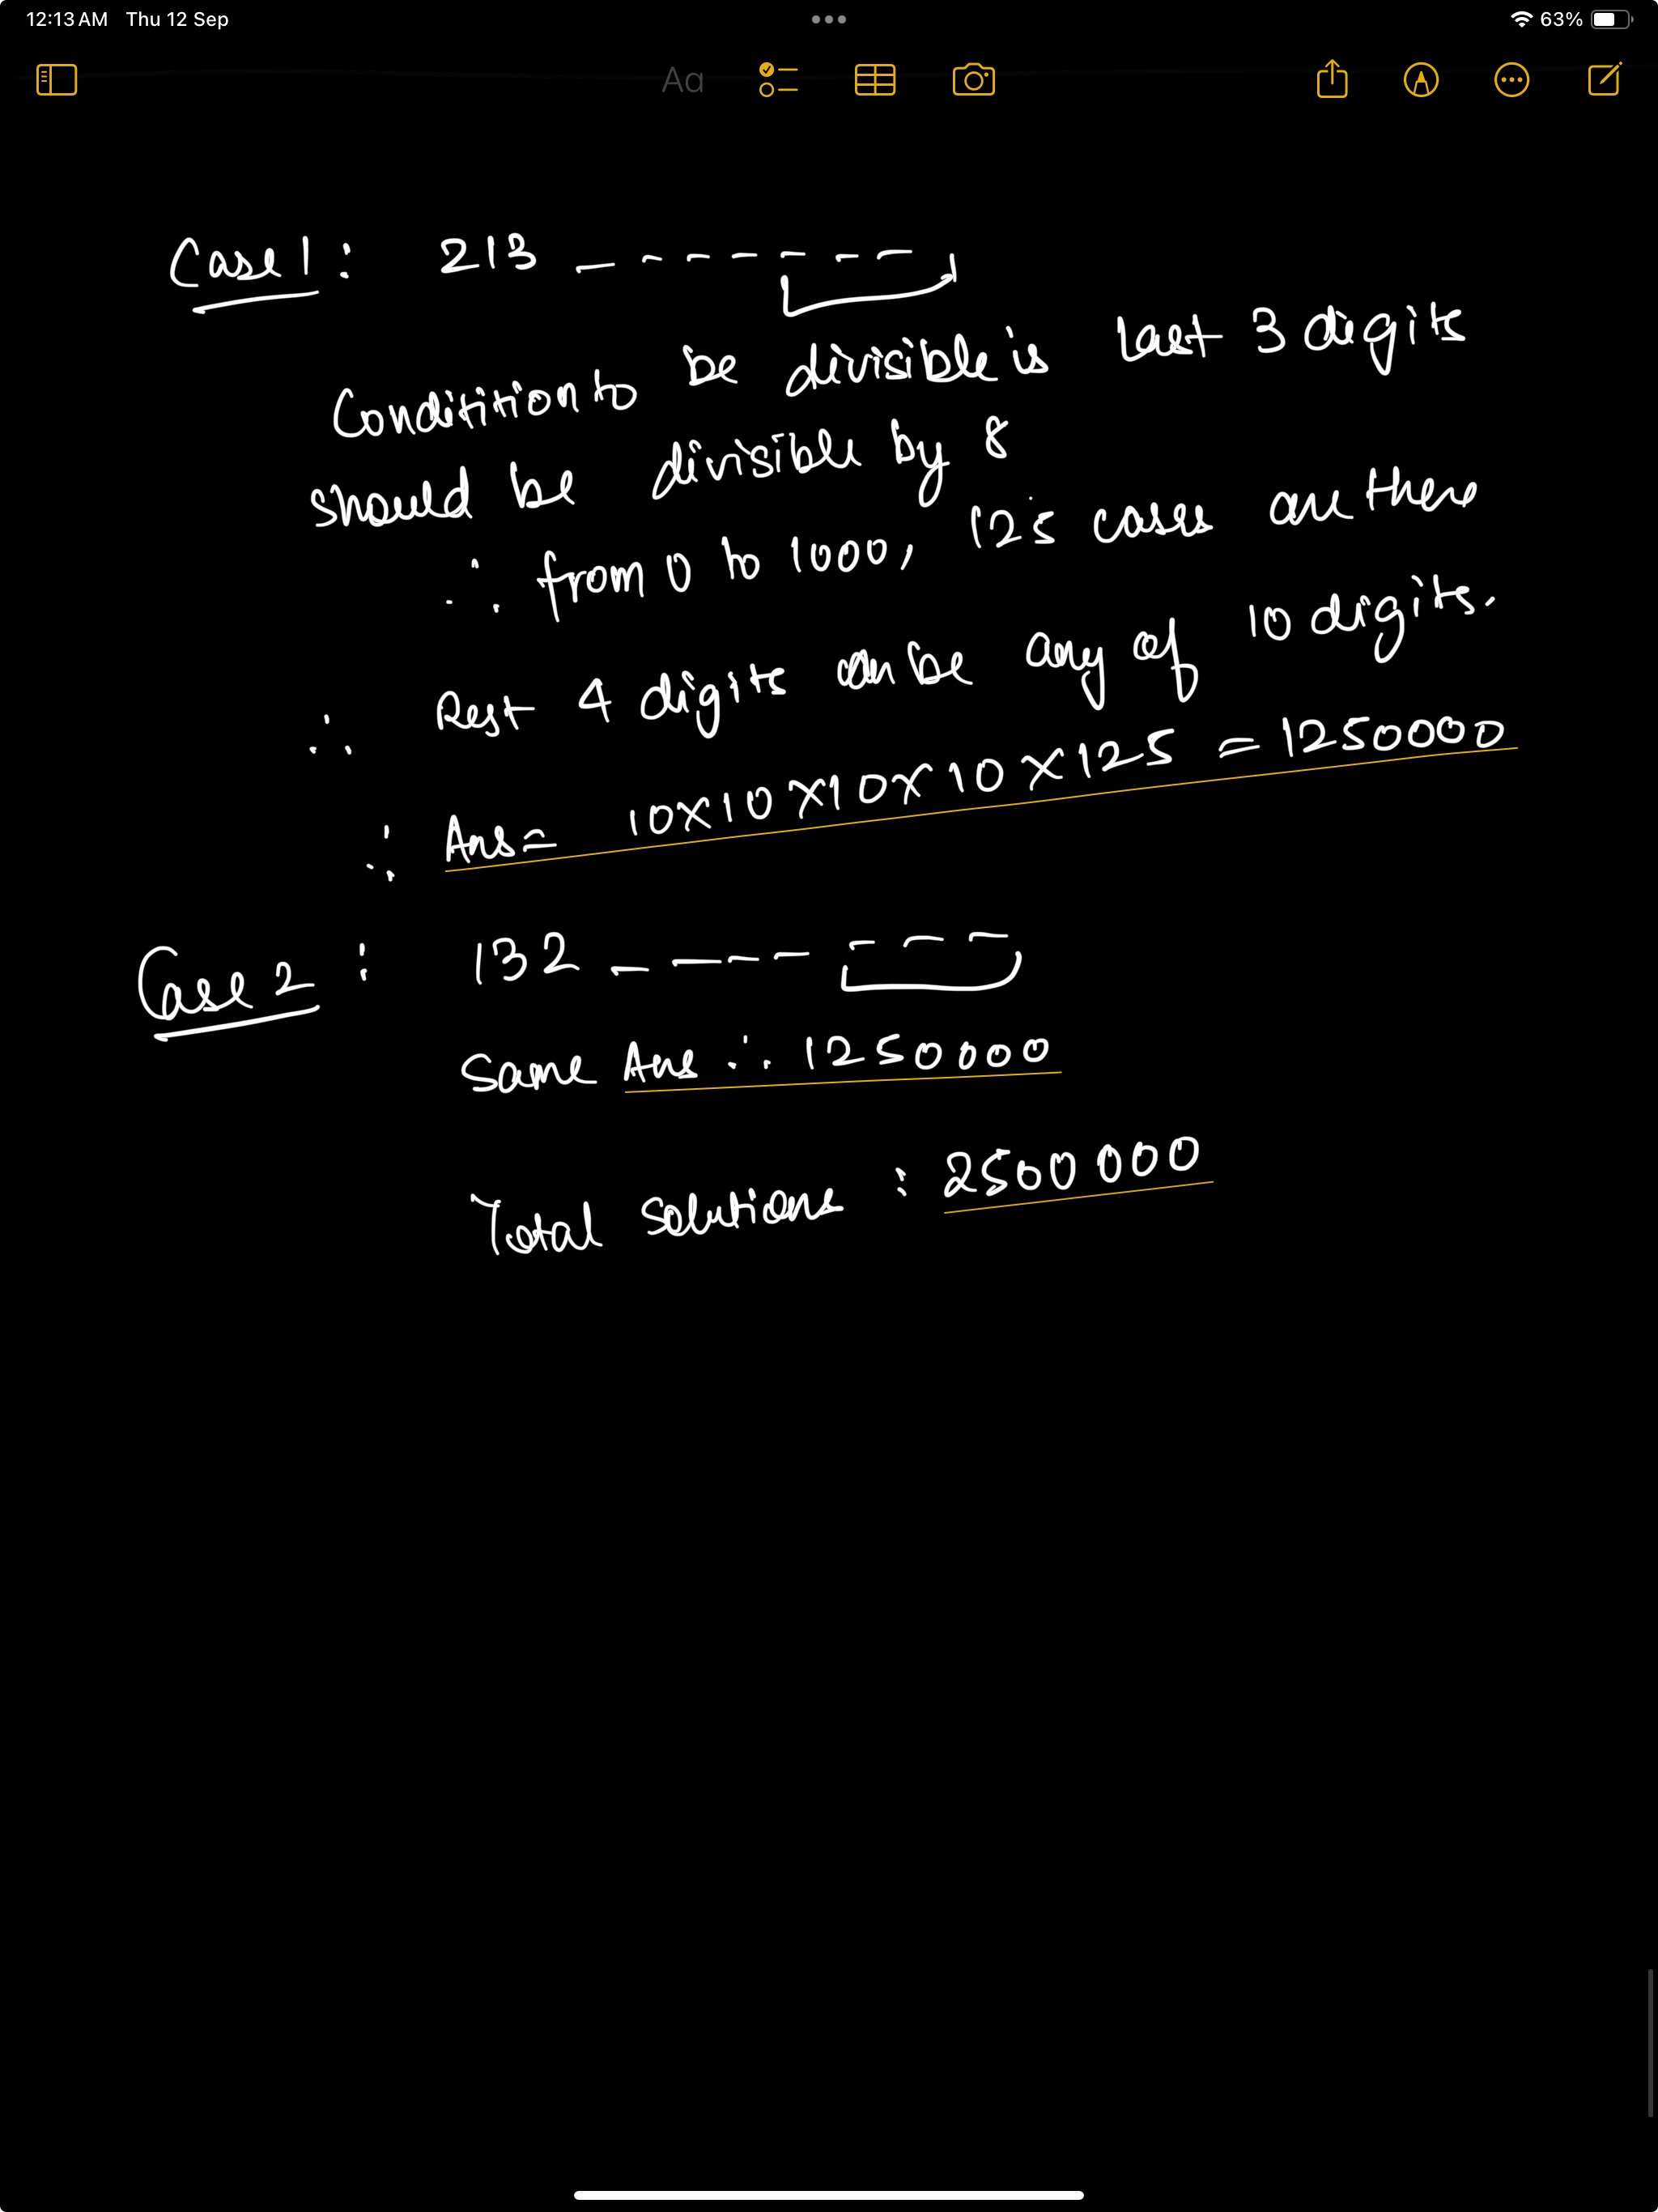 12:13 AM Thu 12 Sep
63%
Aa
Case 1 : 213 _ _ _ _ _ _ _
Condititionto be divisible is last 3 digits
should be divisible by 8
∴ from 0 to 1000, 125 cases are there
∴ Rest 4 digits can be any of 10 digits.
∴ Ans= 10×10×10×10×125 = 1250000
Case 2 : 132 _ _ _ _ _ _ _
Same Ans ∴ 1250000
Total solutions : 2500000